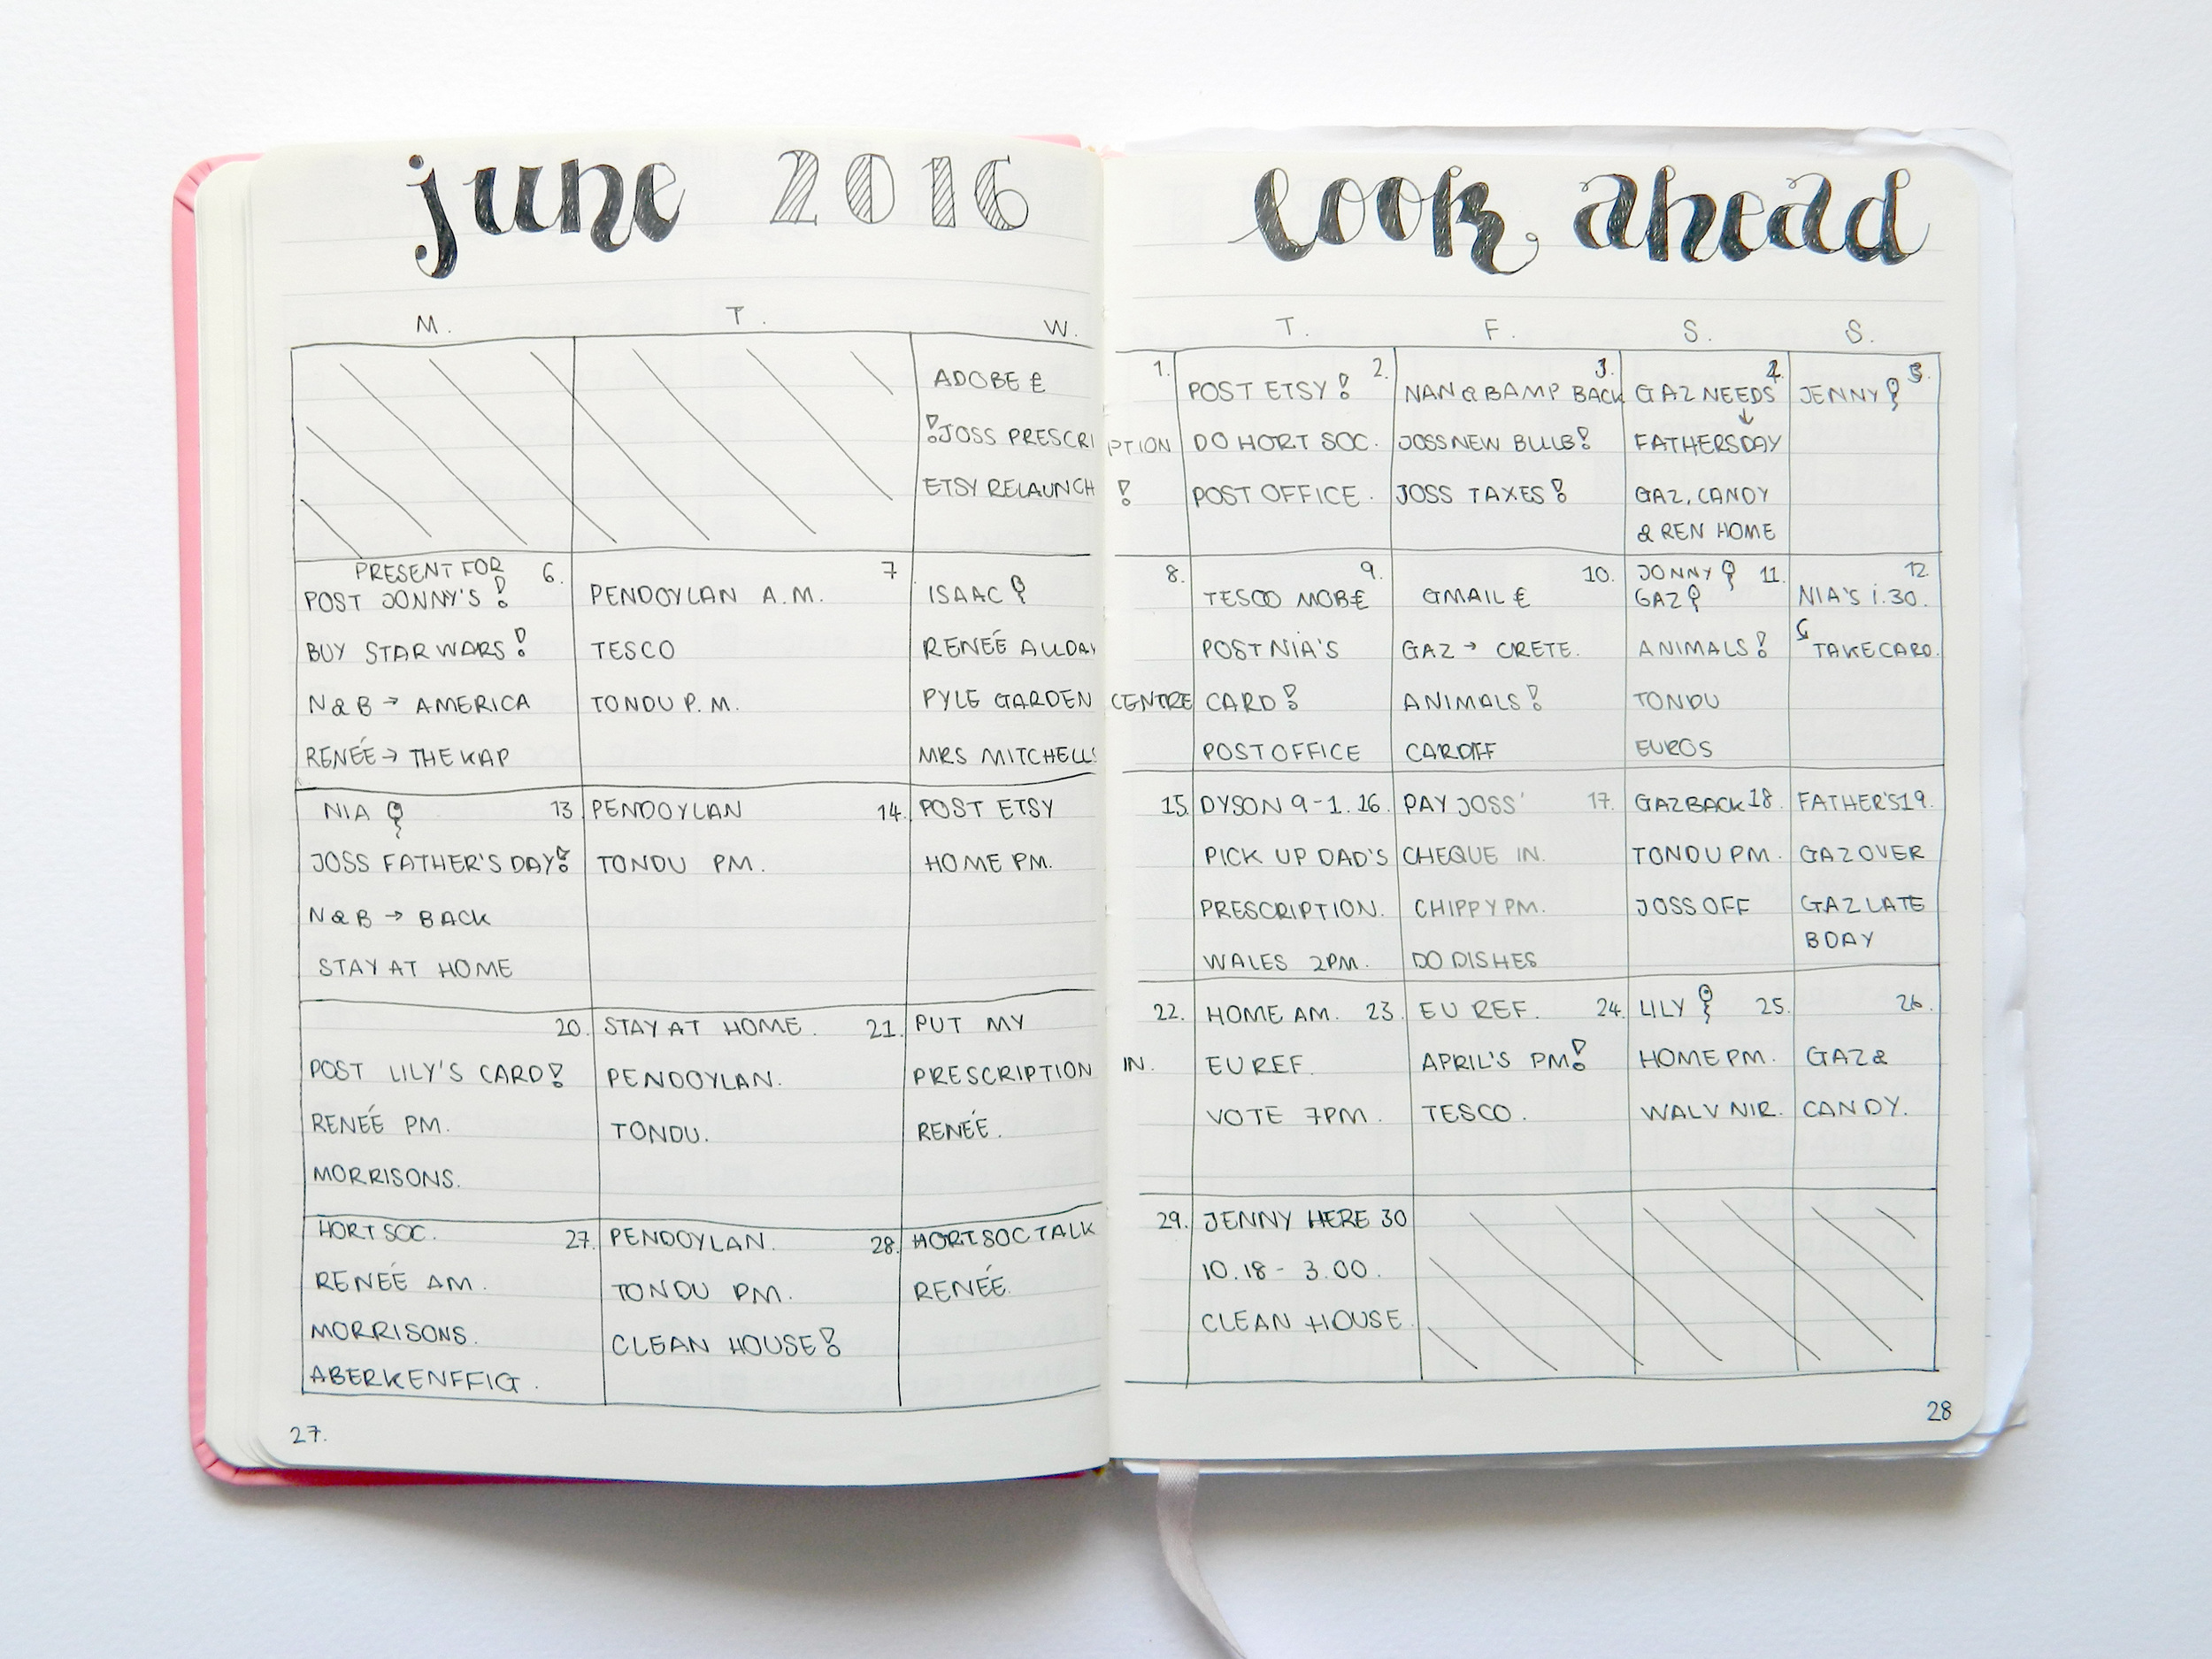 june 2016
look ahead
M. T. W. T. F. S. S.
ADOBE £
!JOSS PRESCRIPTION
ETSY RELAUNCH!
1.
POST ETSY! 2.
DO HORT SOC.
POST OFFICE.
3.
NAN & BAMP BACK
JOSS NEW BULB!
JOSS TAXES!
4.
GAZ NEEDS
↓
FATHERSDAY
GAZ, CANDY
& REN HOME
5.
JENNY
PRESENT FOR 6.
POST JONNY'S!
BUY STAR WARS!
N&B → AMERICA
RENEÉ → THE KAP
7
PENDOYLAN A.M.
TESCO
TONDU P.M.
8.
ISAAC
RENEÉ ALLDAY
PYLE GARDEN CENTRE
MRS MITCHELLS
9.
TESCO MOB£
POST NIA'S
CARD!
POST OFFICE
10.
GMAIL £
GAZ → CRETE.
ANIMALS!
CARDIFF
JONNY 11.
GAZ
ANIMALS!
TONDU
EUROS
12.
NIA'S 1.30.
TAKE CARD.
NIA 13
JOSS FATHER'S DAY!
N&B → BACK
STAY AT HOME
PENDOYLAN 14.
TONDU PM.
POST ETSY 15.
HOME PM.
DYSON 9-1. 16.
PICK UP DAD'S
PRESCRIPTION.
WALES 2PM.
PAY JOSS' 17.
CHEQUE IN.
CHIPPY PM.
DO DISHES
GAZ BACK 18.
TONDU PM.
JOSS OFF
FATHER'S 19.
GAZ OVER
GAZ LATE
BDAY
20.
POST LILY'S CARD!
RENEÉ PM.
MORRISONS.
STAY AT HOME. 21.
PENDOYLAN.
TONDU.
PUT MY 22.
PRESCRIPTION IN.
RENEÉ.
HOME AM. 23.
EU REF.
VOTE 7PM.
EU REF. 24.
APRIL'S PM!
TESCO.
LILY 25.
HOME PM.
WAL V NIR.
26.
GAZ &
CANDY.
HORT SOC. 27.
RENEÉ AM.
MORRISONS.
ABERKENFFIG.
PENDOYLAN. 28.
TONDU PM.
CLEAN HOUSE!
HORT SOC TALK 29.
RENEÉ.
JENNY HERE 30
10.18 - 3.00.
CLEAN HOUSE.
27.
28